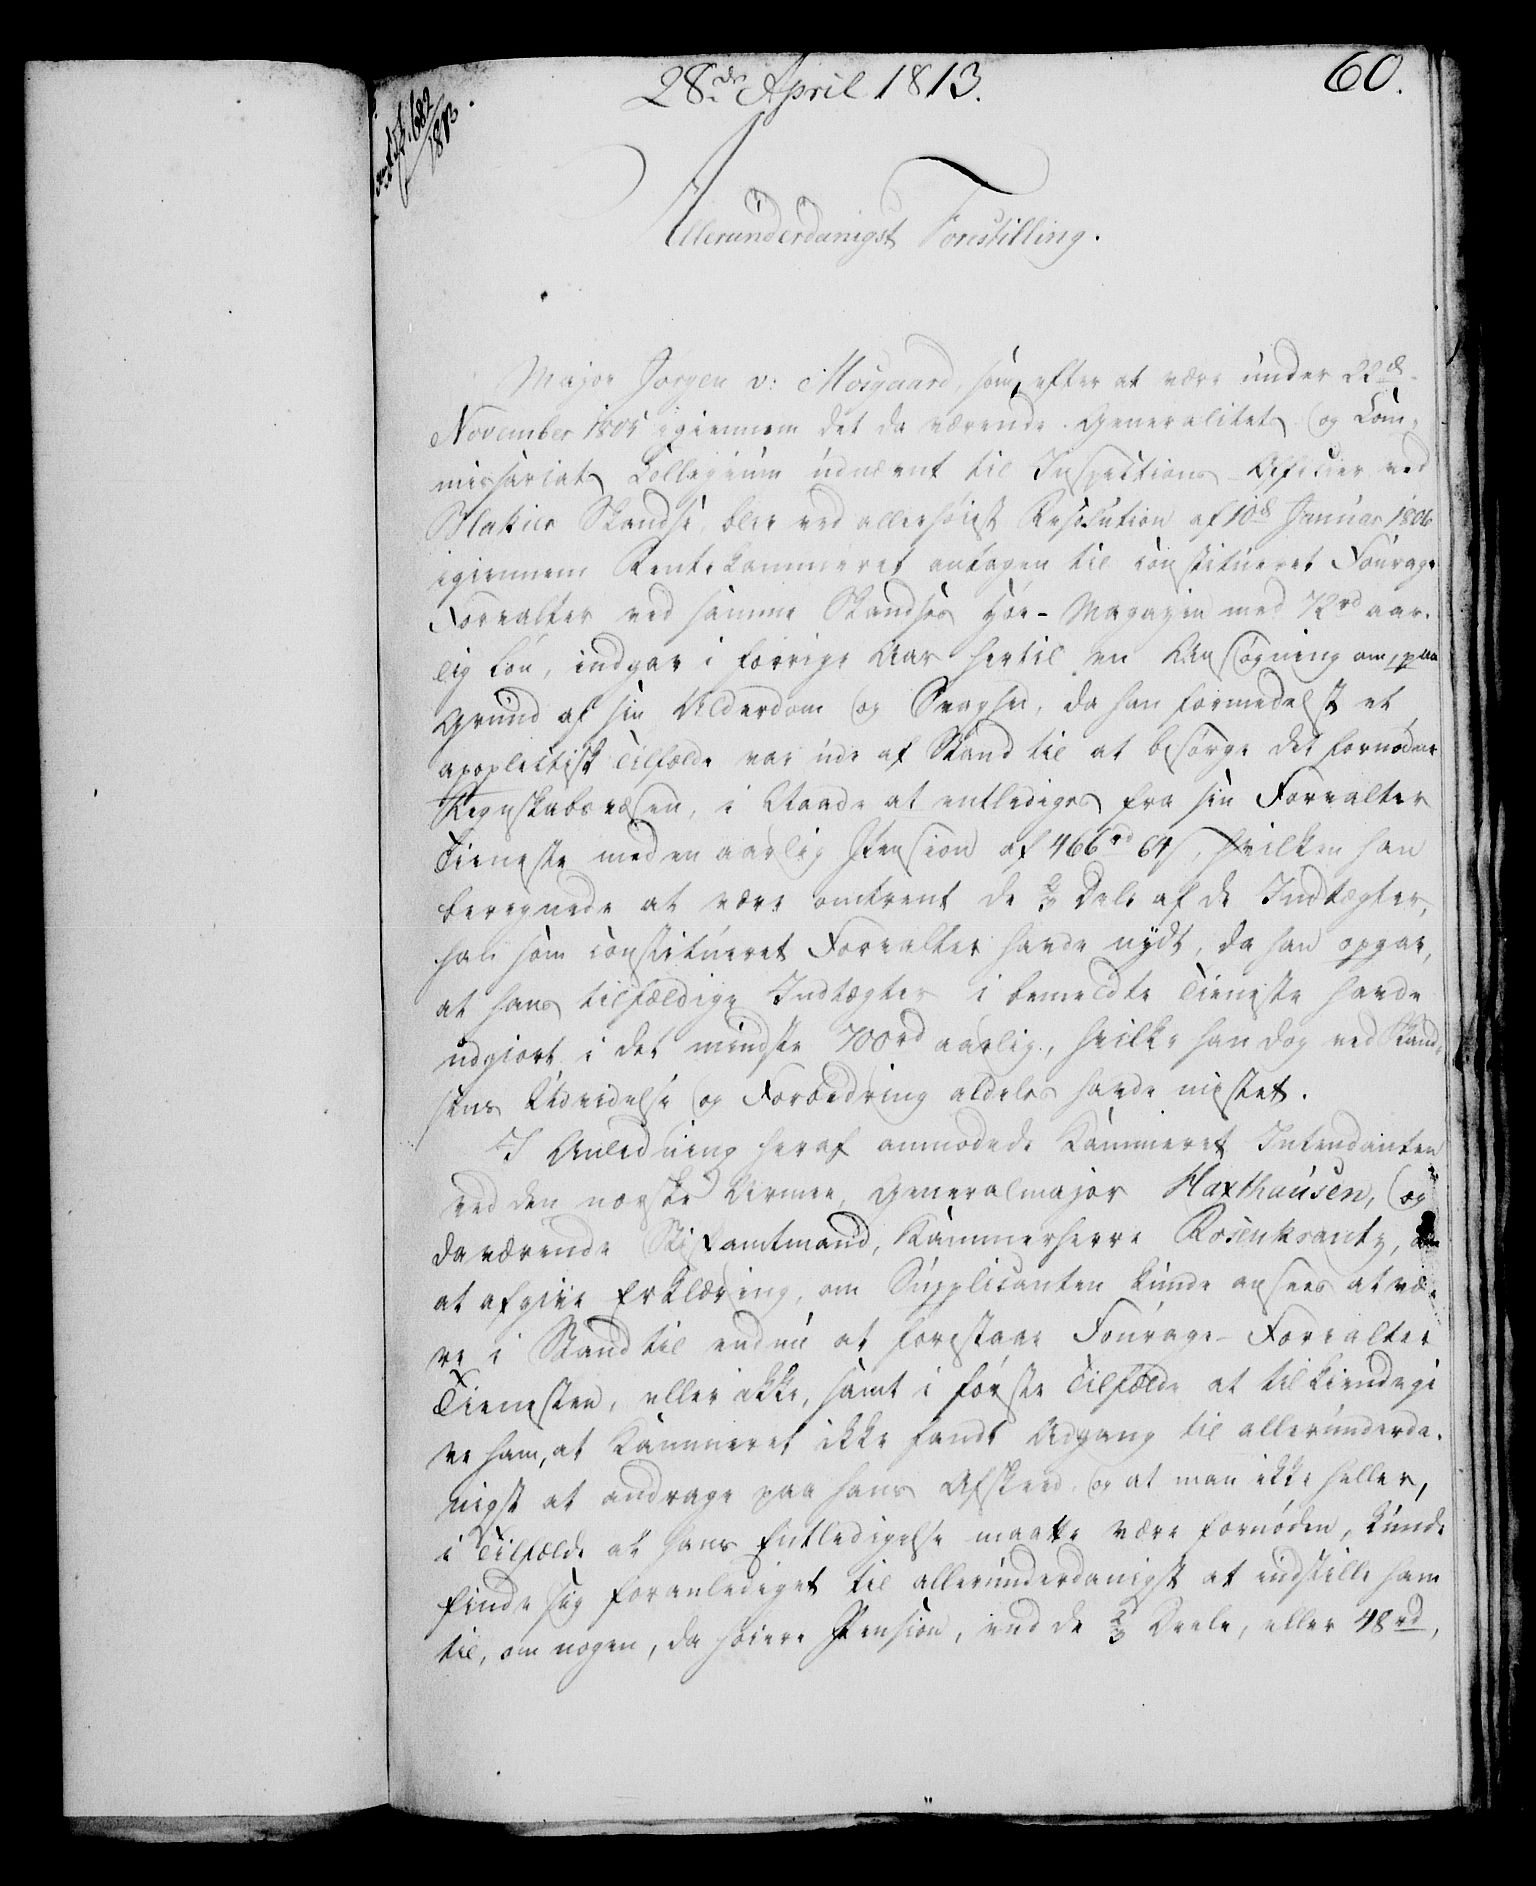 28de April 1813.
60.
682
1813
Allerunderdanigst Forestilling.
Major Jørgen v: Mosgaard, som, efter at være under 22de
November 1805 igiennem det da værende Generalitets og Com-
missariats Collegium udnævnt til Inspections-Officier ved
Blakier Skandse, blev ved allerhøiest Resolution af 10de Januar 1806
igiennem Rentekammeret antagen til constitueret Fourage
Forvalter ved samme Skandses Høe-Magazin med 72rd aar-
lig Løn, indgav i forrige Aar hertil en Ansøgning om, paa
Grund af sin Alderdom og Svaghed, da han formedelst et
apoplectisk Tilfælde var ude af Stand til at besørge det fornødne
Regnskabsvæsen, i Naade at entlediges fra sin Forvalter
Tieneste med en aarlig Pension af 466rd 64s, hvilken han
beregnede at være omtrent de 2/3 Dele af de Indtægter,
han som constitueret Forvalter havde nydt, da han opgav,
at hans tilfældige Indtægter i bemeldte Tieneste havde
udgiort i det mindste 700rd aarlig, hvilke han dog ved Skand-
sens Udvidelse og Forbedring aldeles havde mistet.
I Anledning heraf anmodede Kammeret Intendanten
ved den norske Armee, Generalmajor Haxthausen, og
daværende Stiftamtmand, Kammerherre Rosenkrantz, om
at afgive Erklæring, om Supplicanten kunde ansees at væ-
re i Stand til endnu at forestaae Fourage-Forvalter
Tienesten, eller ikke, samt i første Tilfælde at tilkiendegi
ve ham, at Kammeret ikke fandt Adgang til allerunderda-
nigst at andrage paa hans Afskeed, og at man ikke heller,
i Tilfælde at hans Entledigelse maatte være fornøden, kunde
finde sig foranlediget til allerunderdanigst at indstille ham
til, om nogen, da høiere Pension, end de 2/3 Deele, eller 48rd,